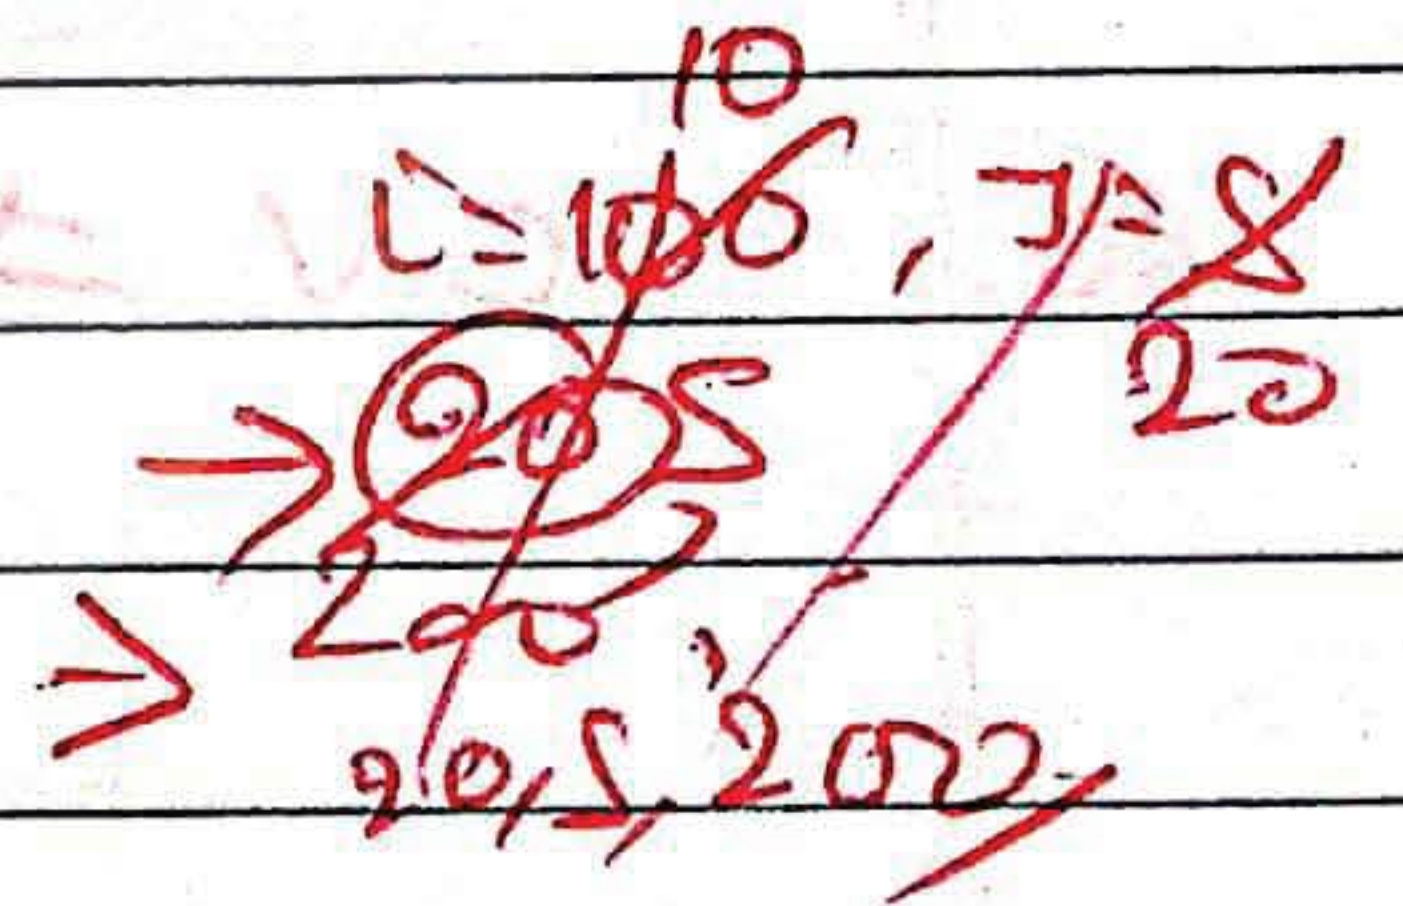 10
i = 100, J = 8
20
→ 20 5
200
→
20, 5, 200,